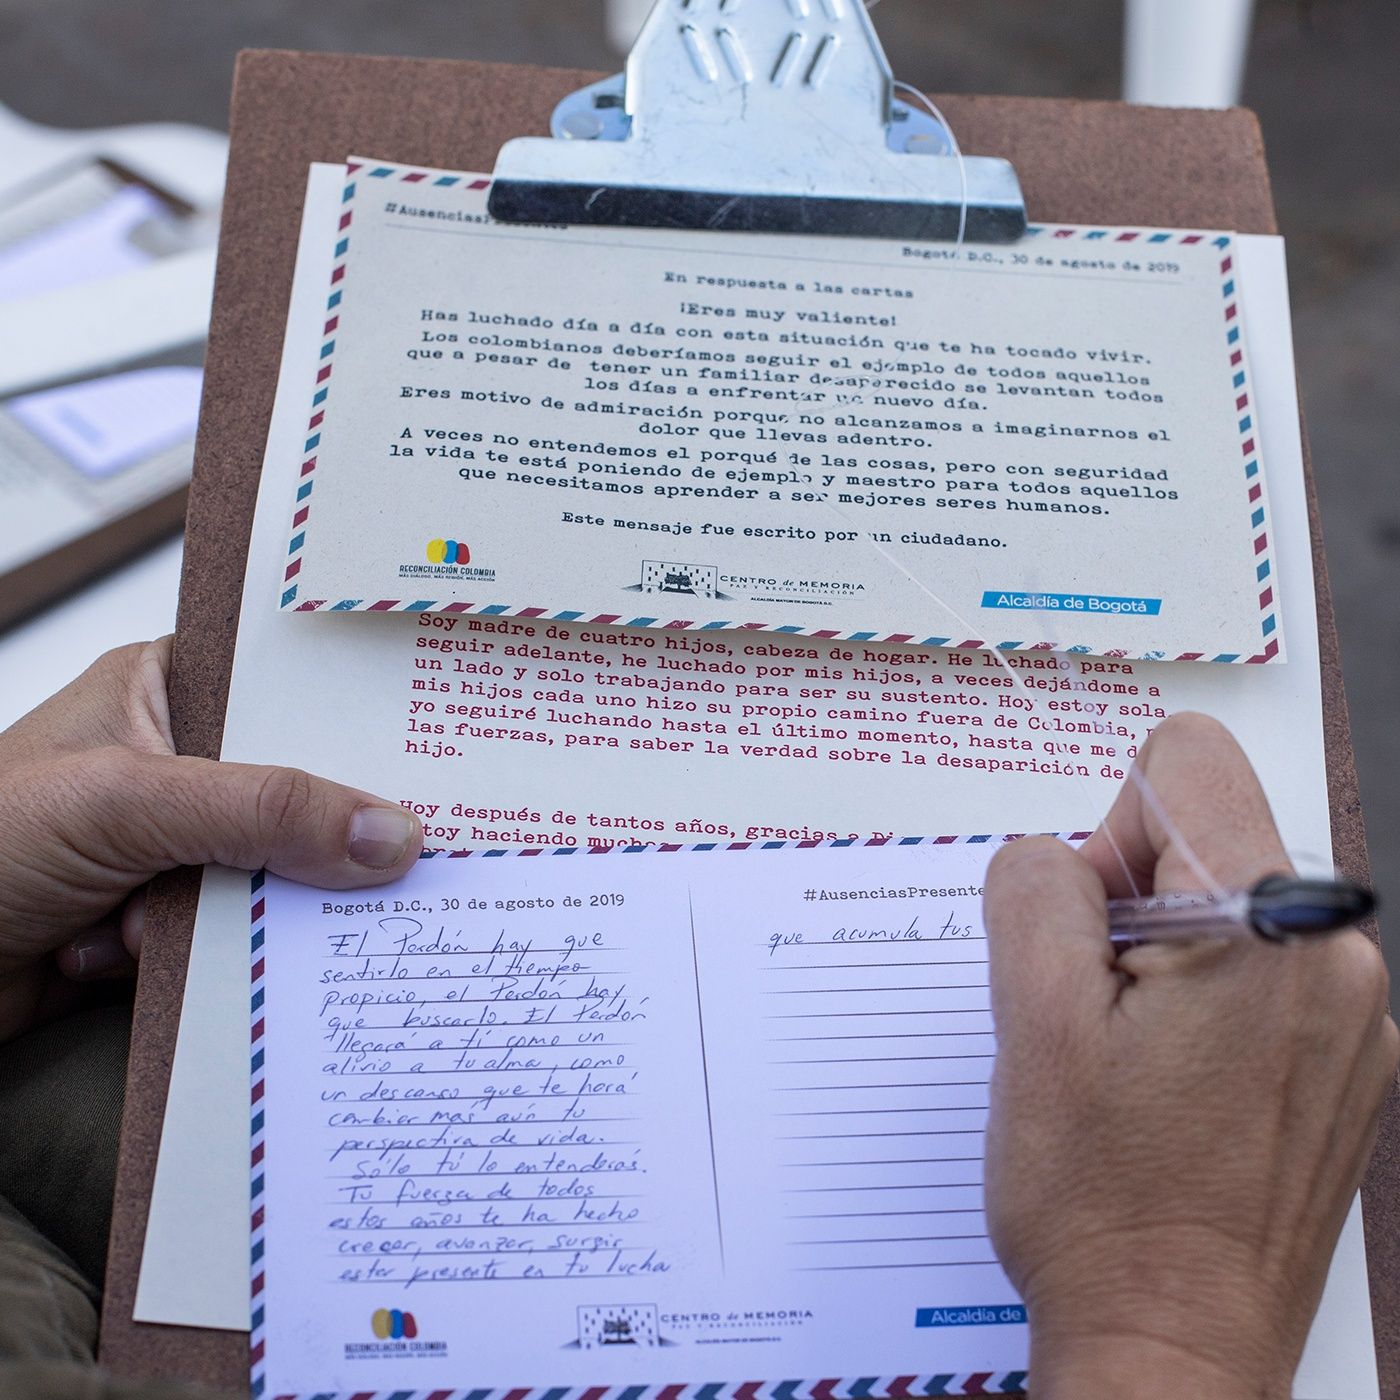 #AusenciasPresente
Bogotá D.C., 30 de agosto de 2019
En respuesta a las cartas
¡Eres muy valiente!
Has luchado día a día con esta situación que te ha tocado vivir.
Los colombianos deberíamos seguir el ejemplo de todos aquellos
que a pesar de tener un familiar desaparecido se levantan todos
los días a enfrentar un nuevo día.
Eres motivo de admiración porque no alcanzamos a imaginarnos el
dolor que llevas adentro.
A veces no entendemos el porqué de las cosas, pero con seguridad
la vida te está poniendo de ejemplo y maestro para todos aquellos
que necesitamos aprender a ser mejores seres humanos.
Este mensaje fue escrito por un ciudadano.
RECONCILIACIÓN COLOMBIA
MÁS DIÁLOGO, MÁS REGIÓN, MÁS ACCIÓN
CENTRO de MEMORIA
PAZ Y RECONCILIACIÓN
ALCALDÍA MAYOR DE BOGOTÁ D.C.
Alcaldía de Bogotá
Soy madre de cuatro hijos, cabeza de hogar. He luchado para
seguir adelante, he luchado por mis hijos, a veces dejándome a
un lado y solo trabajando para ser su sustento. Hoy estoy sola,
mis hijos cada uno hizo su propio camino fuera de Colombia,
yo seguiré luchando hasta el último momento, hasta que me d
las fuerzas, para saber la verdad sobre la desaparición de
hijo.
Hoy después de tantos años, gracias a Di
toy haciendo mucho
Bogotá D.C., 30 de agosto de 2019
El Perdón hay que
sentirlo en el tiempo
propicio, el Perdón hay
que buscarlo. El Perdón
llegará a tí como un
alivio a tu alma, como
un descanso que te hará
cambiar más aún tu
perspectiva de vida.
Sólo tú lo entenderás.
Tu fuerza de todos
estos años te ha hecho
crecer, avanzar, surgir
estar presente en tu lucha
#AusenciasPresente
que acumula tus
RECONCILIACIÓN COLOMBIA
MÁS DIÁLOGO, MÁS REGIÓN, MÁS ACCIÓN
CENTRO de MEMORIA
PAZ Y RECONCILIACIÓN
ALCALDÍA MAYOR DE BOGOTÁ D.C.
Alcaldía de